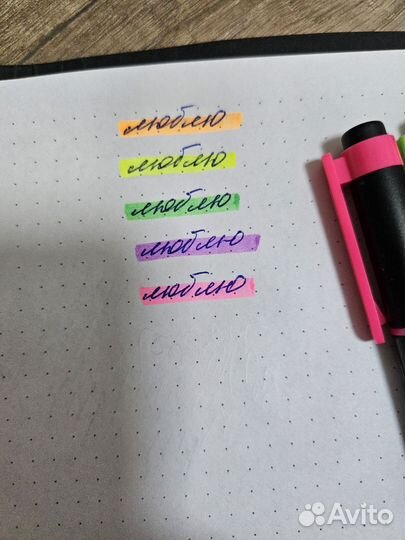 люблю
люблю
люблю
люблю
люблю
Avito